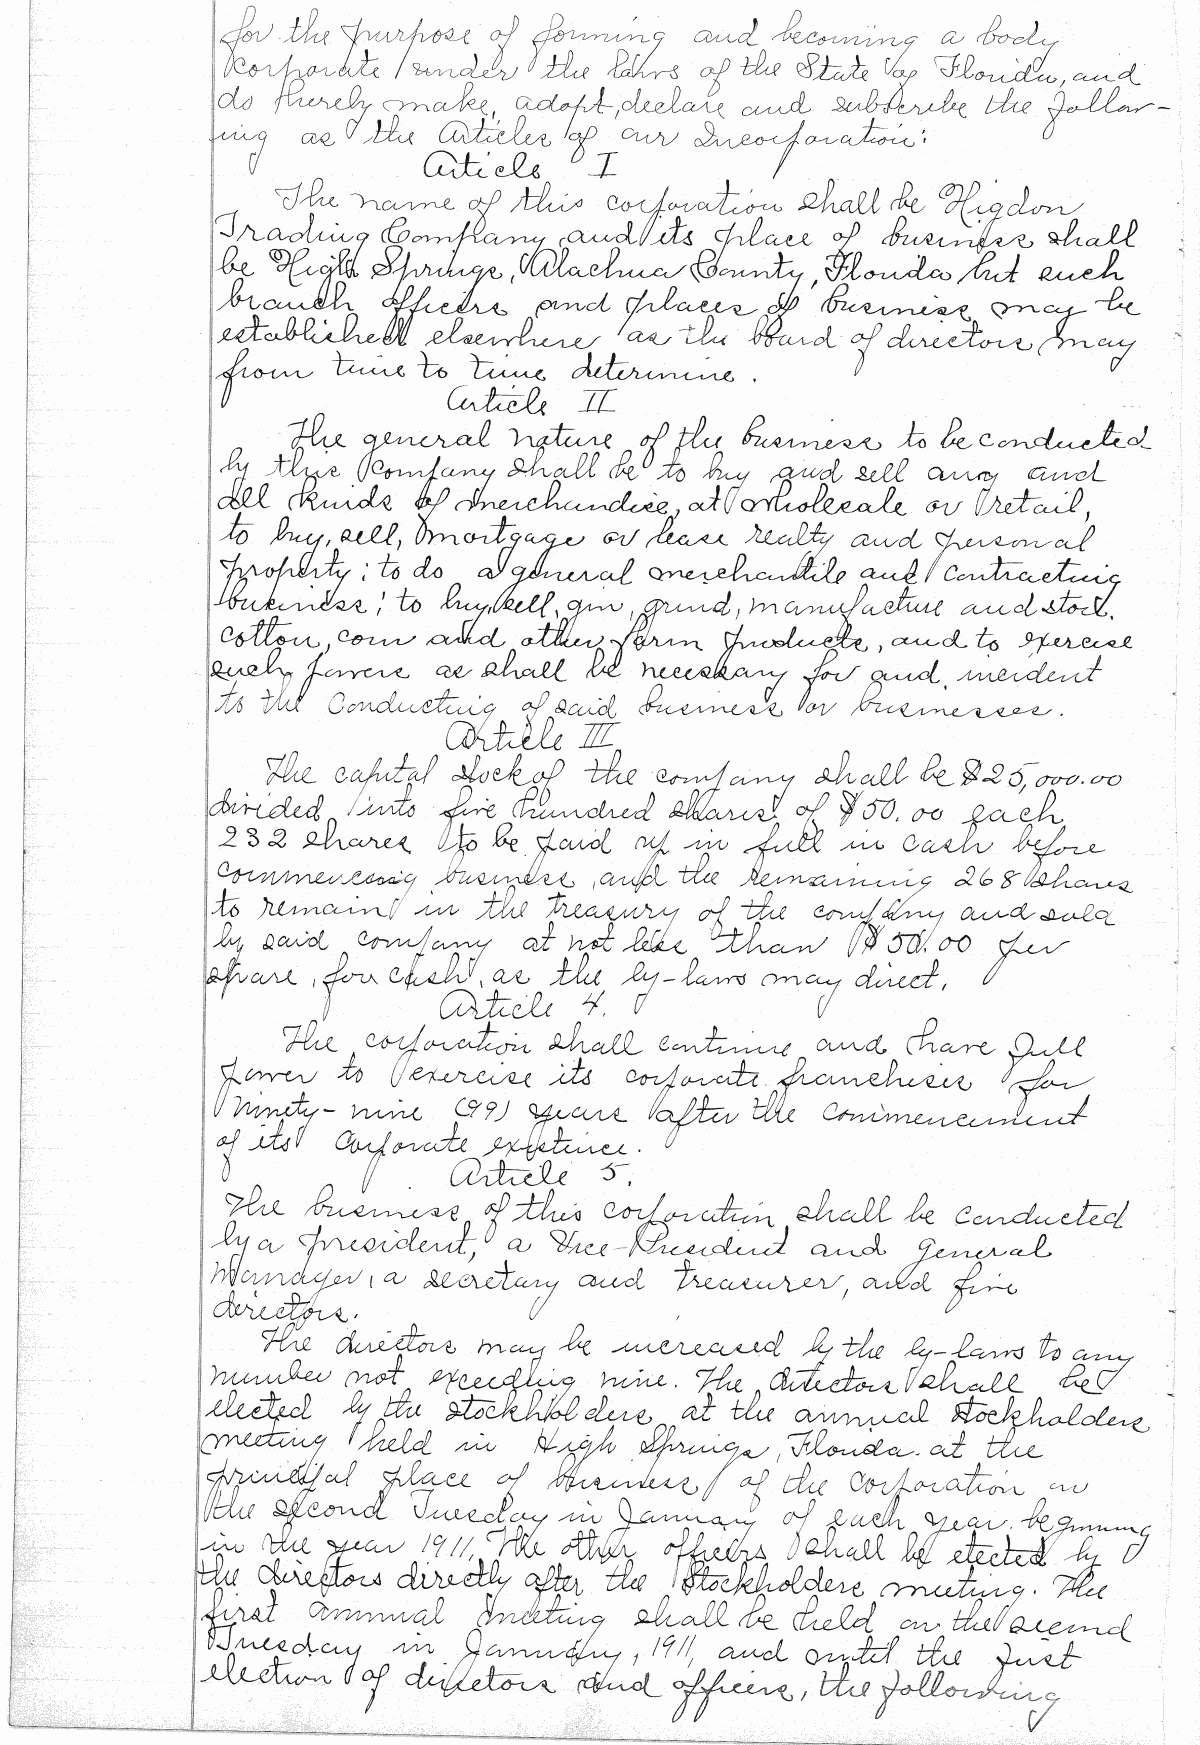 for the purpose of forming and becoming a body
corporate under the laws of the State of Florida, and
do hereby make, adopt, declare and subscribe the follow-
ing as the Articles of our Incorporation:
Article I
The name of this corporation shall be Higdon
Trading Company and its place of business shall
be High Springs, Alachua County, Florida but such
branch officers and places of business may be
established elsewhere as the board of directors may
from time to time determine.
Article II
The general nature of the business to be conducted
by this company shall be to buy and sell any and
all kinds of merchandise, at wholesale or retail,
to buy, sell, mortgage or lease realty and personal
property; to do a general merchantile and contracting
business; to buy, sell, gin, grind, manufacture and stock.
cotton, corn and other farm products, and to exercise
such powers as shall be necessary for and incident
to the conducting of said business or businesses.
Article III
The capital stock of the company shall be $25,000.00
divided into five hundred shares of $50.00 each
232 shares to be paid up in full in cash before
commencing business, and the remaining 268 shares
to remain in the treasury of the company and sold
by said company at not less than $50.00 per
share, for cash, as the by-laws may direct.
Article 4.
The corporation shall continue and have full
power to exercise its corporate franchises for
ninety-nine (99) years after the commencement
of its corporate existence.
Article 5.
The business of this corporation shall be conducted
by a president, a Vice-President and General
Manager, a secretary and treasurer, and five
directors.
The directors may be increased by the by-laws to any
number not exceeding nine. The directors shall be
elected by the stockholders at the annual stockholders
meeting held in High Springs, Florida. at the
principal place of business of the corporation on
the second Tuesday in January of each year beginning
in the year 1911. The other officers shall be elected by
the directors directly after the Stockholders meeting. The
first annual meeting shall be held on the second
Tuesday in January, 1911, and until the first
election of directors and officers, the following